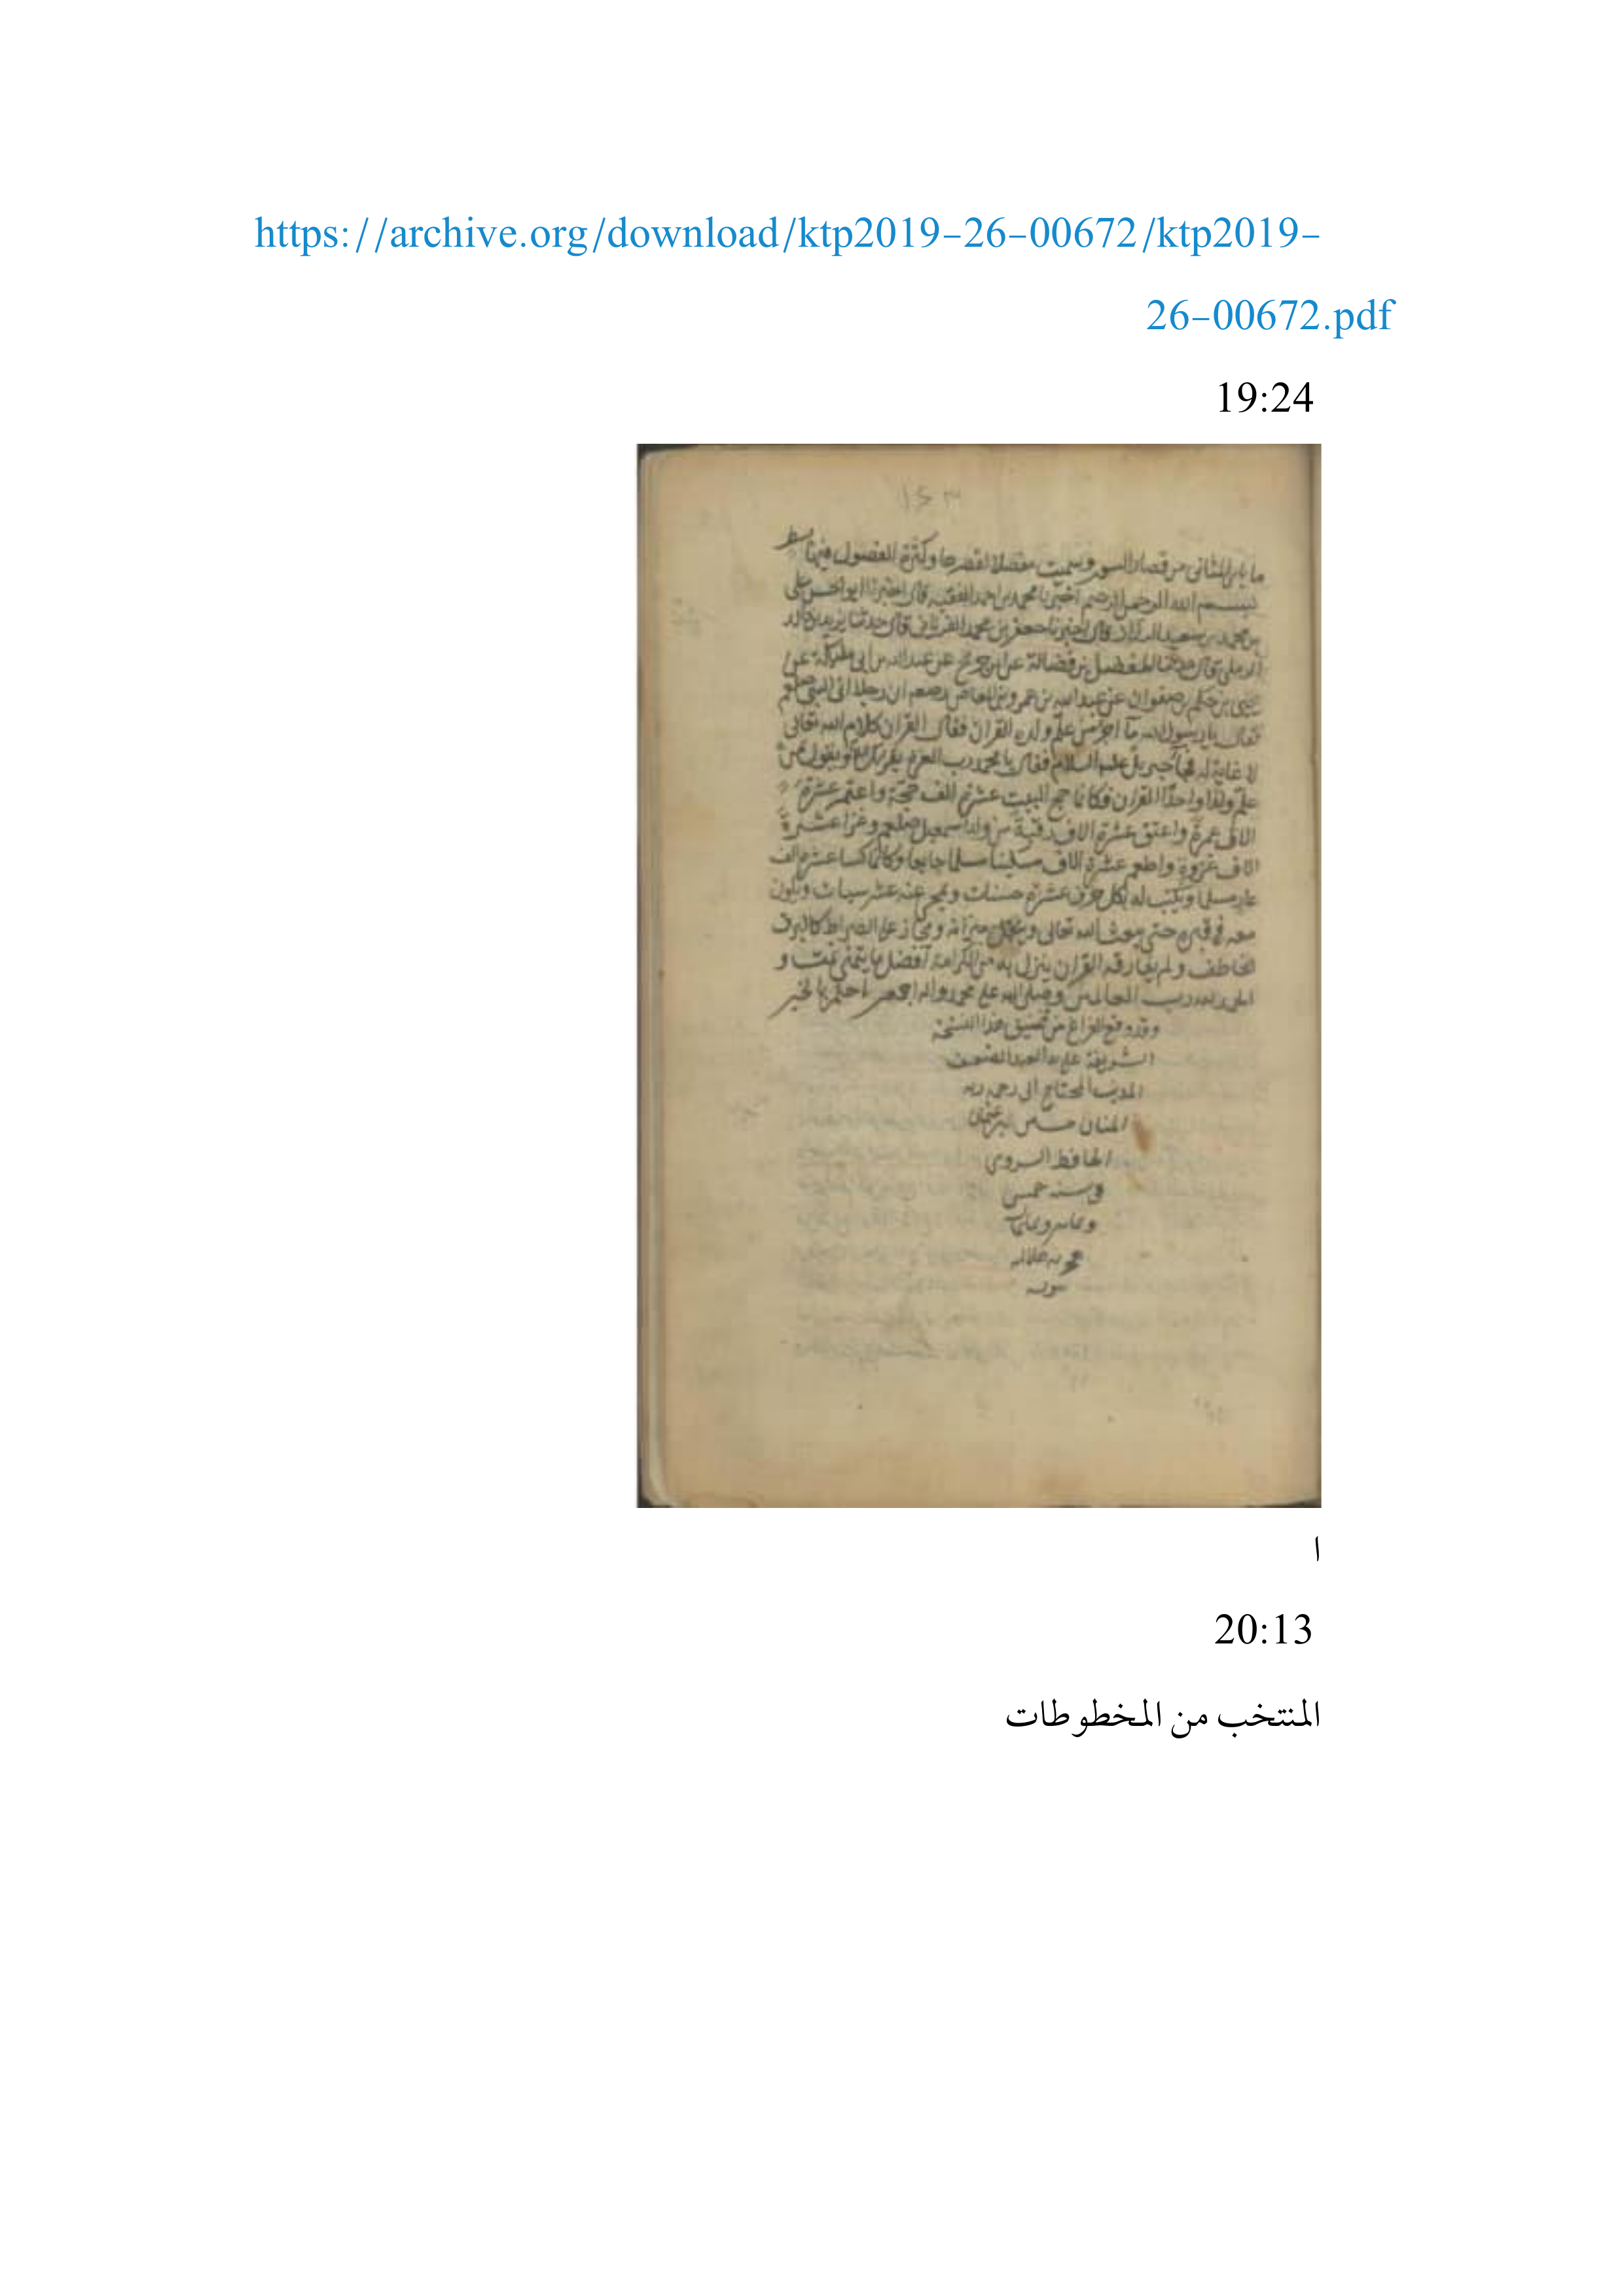 https://archive.org/download/ktp2019-26-00672/ktp2019-
26-00672.pdf
19:24
١٥٣
ما يلي المثاني من قصار السور وسميت مفصلا لقصرها وكثرة الفصول فيها
بسم الله الرحمن الرحيم اخبرنا محمد بن احمد الفقيه قال اخبرنا ابو الحسن علي
بن محمد بن سعيد قال اخبرنا جعفر بن محمد الفريابي قال حدثنا يزيد بن خالد
الرملي قال حدثنا المفضل بن فضالة عن ابن جريج عن عبد الله بن ابي مليكة عن
يحيى بن حكيم بن صفوان عن عبد الله بن عمرو بن العاص ان رجلا اتى النبي صلعم
فقال يا رسول الله ما اجر من علم ولده القران فقال القران كلام الله تعالى
لا غاية له فجآ جبريل عليه السلام فقال يا محمد رب العزة ويقول من
علم ولدا واحدا القران فكانما حج البيت عشرة الف حجة واعتمر عشرة
الاف عمرة واعتق عشرة الاف رقبة من ولد اسمعيل صلعم وغزا عشرة
الاف غزوة واطعم عشرة الاف مسكينا مسلما جايعا وكانما كسا عشرة الف
عار مسلما ويكتب له بكل حرف عشرة حسنات ويمحى عنه عشر سيات ويكون
معه في قبره حتى يبعث الله تعالى ويثقل ميزانه ويجاز على الصراط كالبرق
الخاطف ولم يفارقه القران ينزل به من الكرامة افضل ما يتمنى و
الحمد لله رب العالمين وصلى الله على محمد واله اجمعين احكم بالخير
وقد وقع الفراغ من هذا النسخة
الشريفة على يد العبد الضعيف
المذنب المحتاج الى رحمة ربه
المنان حسن بن عثمان
الحافظ
في سنة خمس
وثمانين وثمانمائة
ا
20:13
المنتخب من المخطوطات